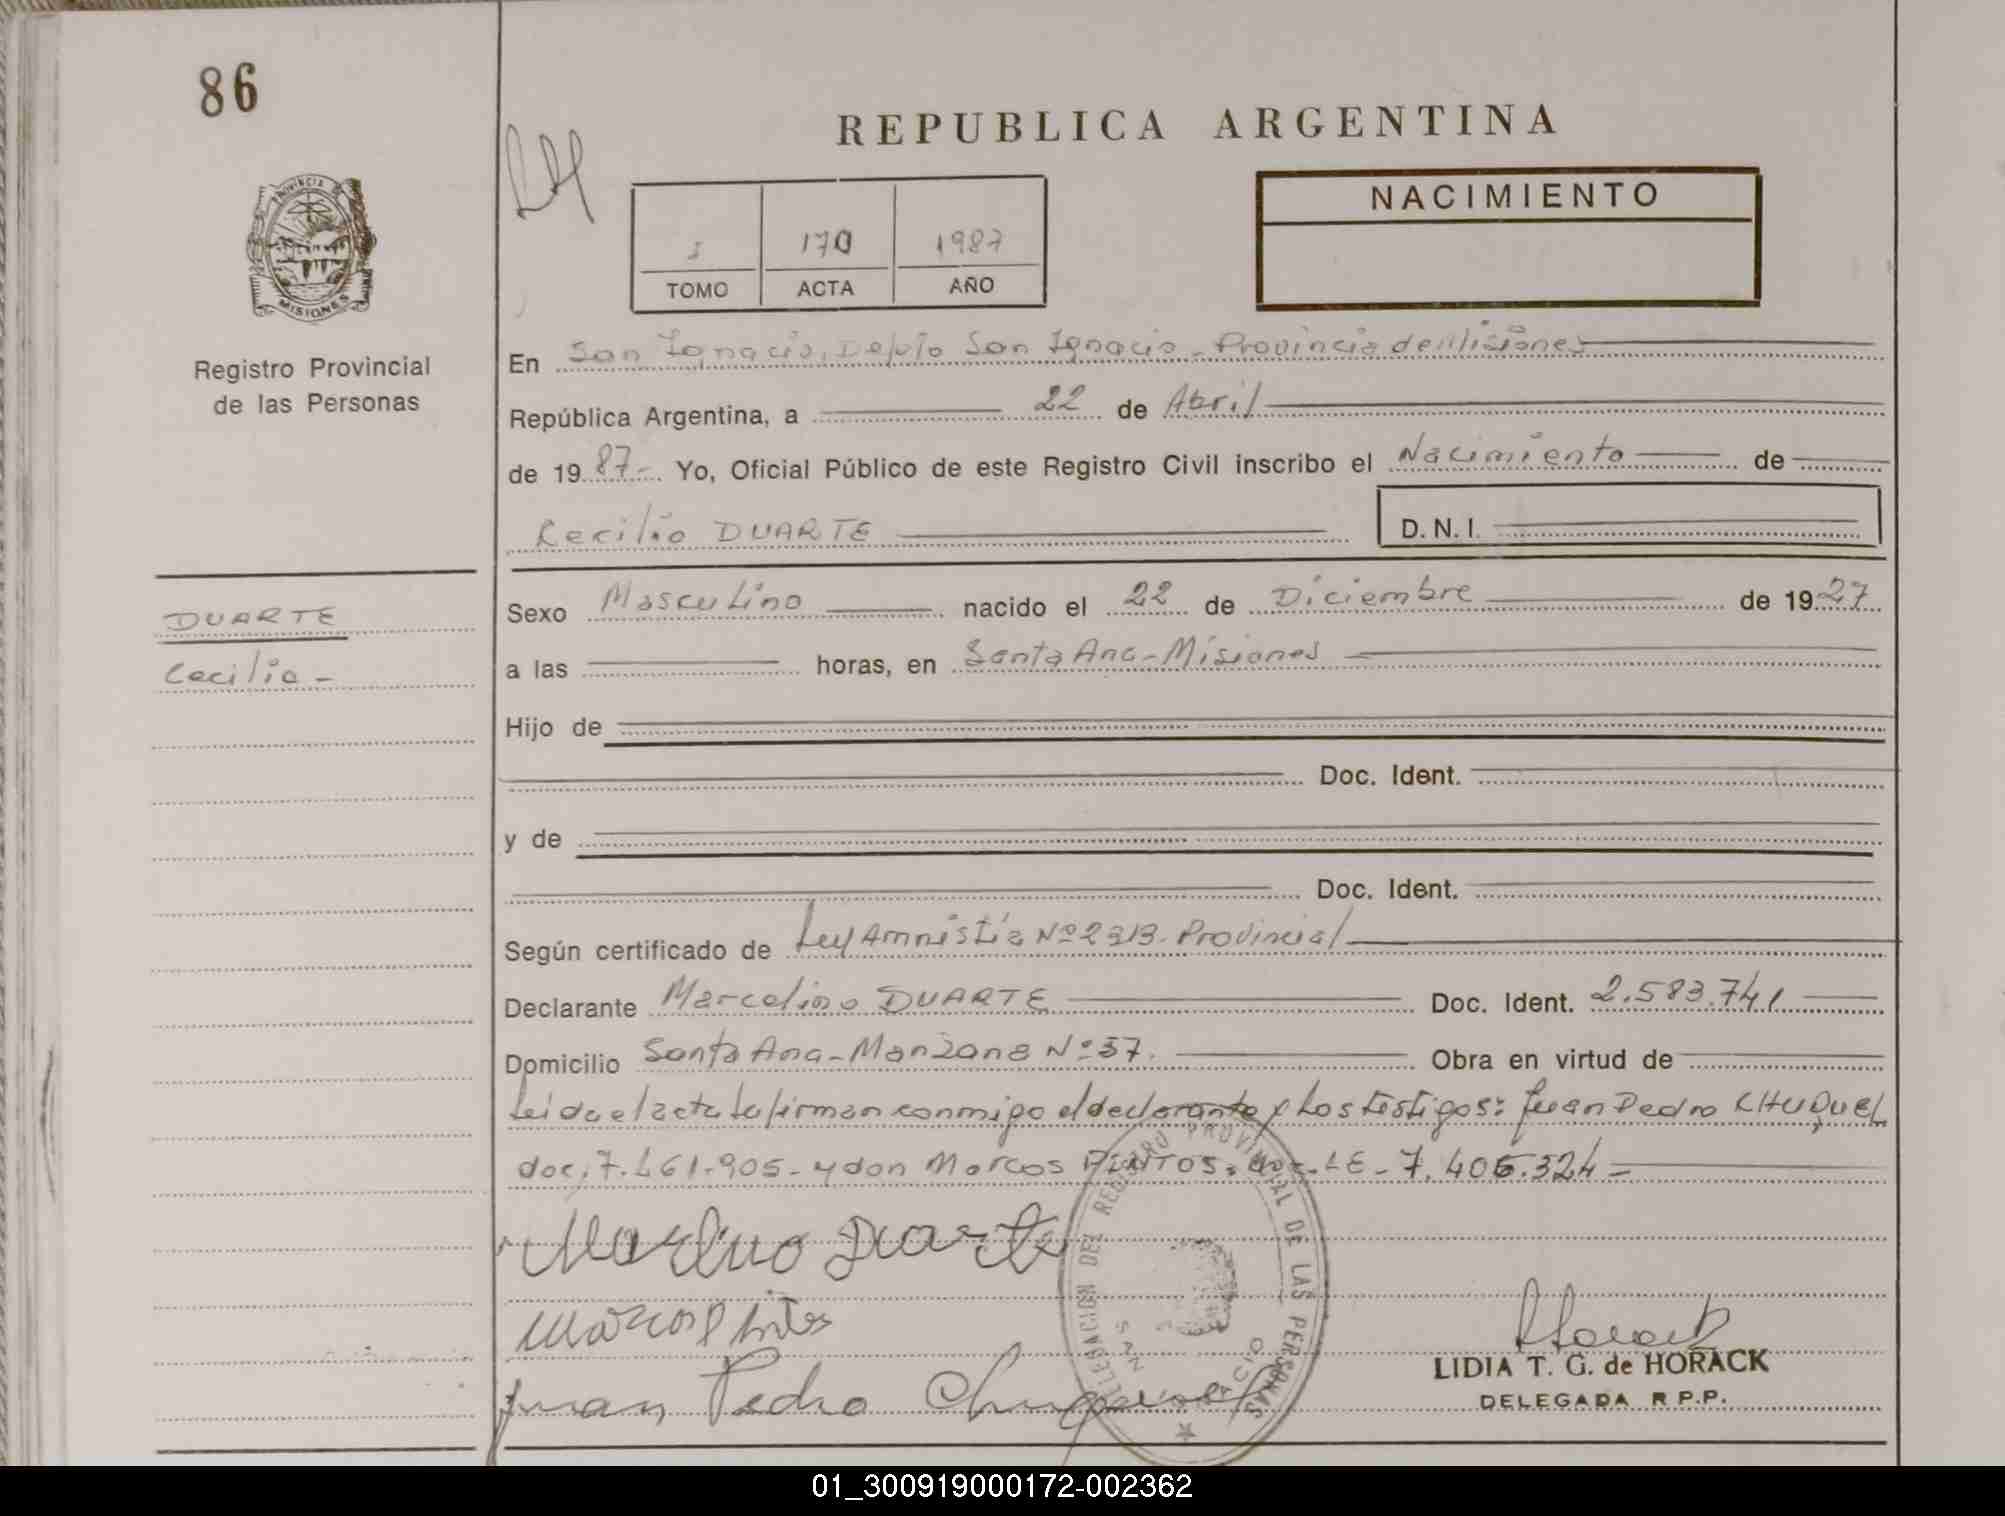 86
REPUBLICA ARGENTINA
NACIMIENTO
PROVINCIA DE
MISIONES
I 170 1987
TOMO ACTA AÑO
Registro Provincial
de las Personas
En San Ignacio, Depto San Ignacio - Provincia de Misiones
República Argentina, a 22 de Abril
de 1987.- Yo, Oficial Público de este Registro Civil inscribo el Nacimiento de
Cecilio DUARTE D.N.I.
DUARTE
Cecilio -
Sexo Masculino nacido el 22 de Diciembre de 1927
a las horas, en Santa Ana - Misiones
Hijo de
Doc. Ident.
y de
Doc. Ident.
Según certificado de Ley Amnistía Nº 2313 - Provincial
Declarante Marcelino DUARTE Doc. Ident. 2.583.741
Domicilio Santa Ana - Manzana Nº 37. Obra en virtud de
Leida el acta la firman conmigo el declarante y los testigos: Juan Pedro CHUQUEL
doc. 7.461.905 - y don Marcos doc. LE - 7.406.324 =
Marcelino Duarte
Marcos
Juan Pedro
DELEGACION DEL REGISTRO PROVINCIAL DE LAS PERSONAS
Horack
LIDIA T. G. de HORACK
DELEGADA R.P.P.
01_300919000172-002362